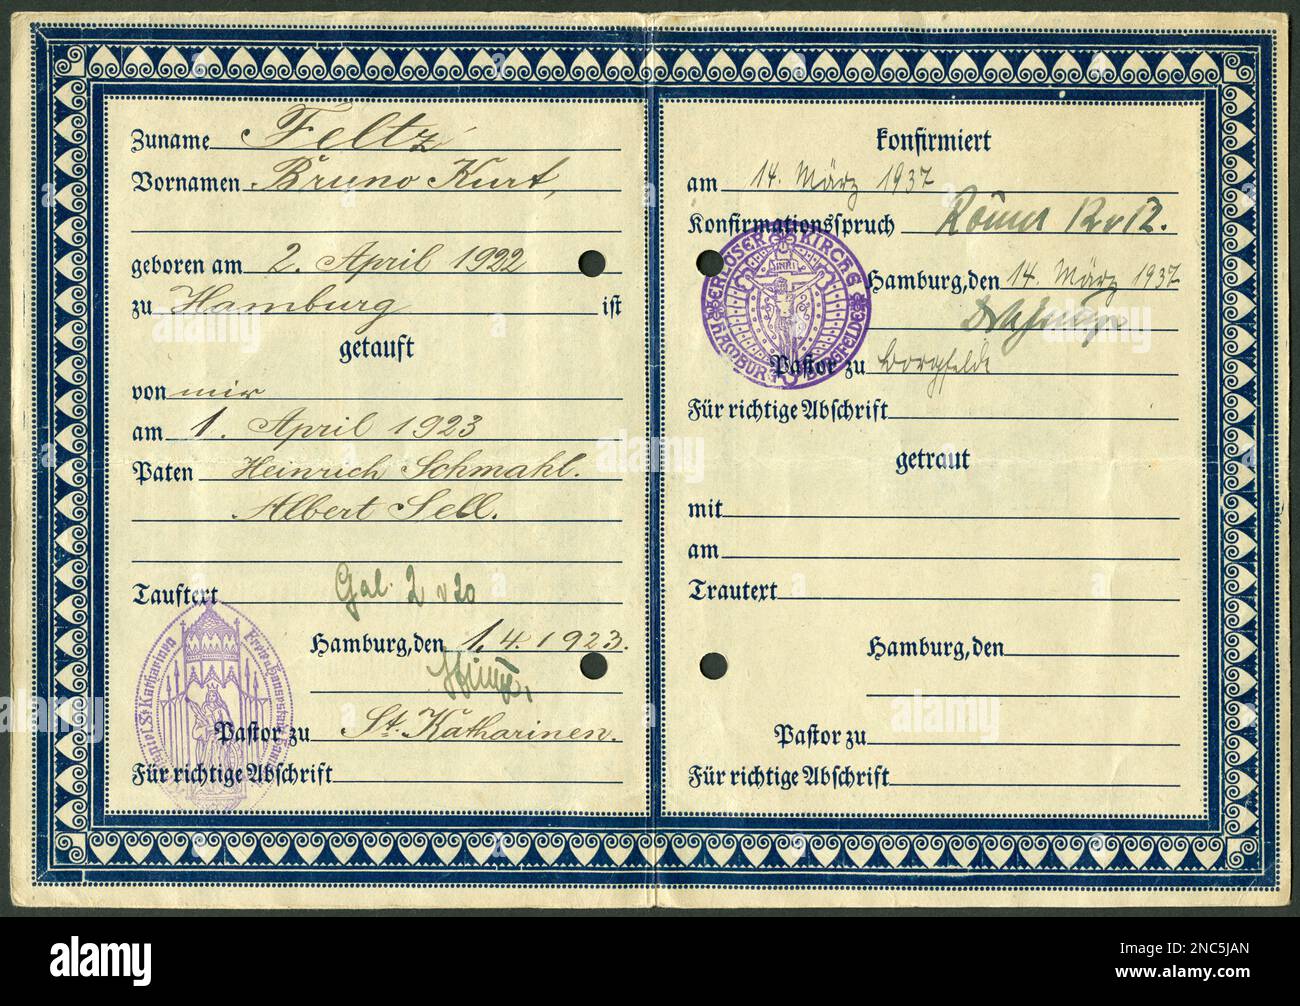 Zuname Feltz
Vornamen Bruno Kurt,
geboren am 2. April 1922
zu Hamburg ist
getauft
von mir
am 1. April 1923
Paten Heinrich Schmahl.
Albert Sell.
Tauftext Gal. 2 v 20
Hamburg, den 1.4.1923.
Pastor zu St. Katharinen.
Für richtige Abschrift
konfirmiert
am 14. März 1937
Konfirmationsspruch Römer 12 v 12.
Hamburg, den 14. März 1937
Pastor zu Borgfelde
Für richtige Abschrift
getraut
mit
am
Trautext
Hamburg, den
Pastor zu
Für richtige Abschrift
ERLÖSER KIRCHE
HAMBURG
INRI
St. Katharinen
alamy
Image ID: 2NC5JAN
www.alamy.com